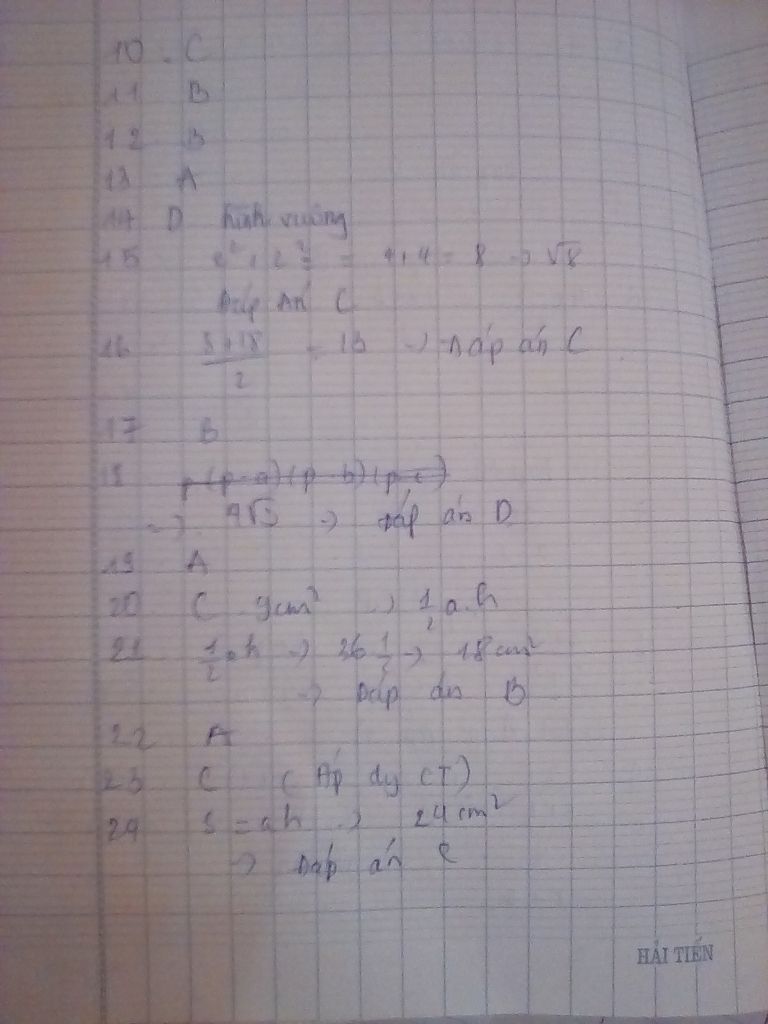 10. C
11 B
12 B
13 A
14 D hình vuông
15 2² + 2² = 4+4 = 8 → √8
Đáp Án C
16 8+18 / 2 = 13 → Đáp án C
17 B
18 p(p-a)(p-b)(p-c)
→ 4√3 → Đáp án D
19 A
20 C 9cm² → 1/2 a.h
21 1/2 . h → 36 1/2 → 18cm²
→ Đáp án B
22 A
23 C ( Áp dụ CT)
24 S = ah → 24cm²
→ Đáp án C
HẢI TIẾN